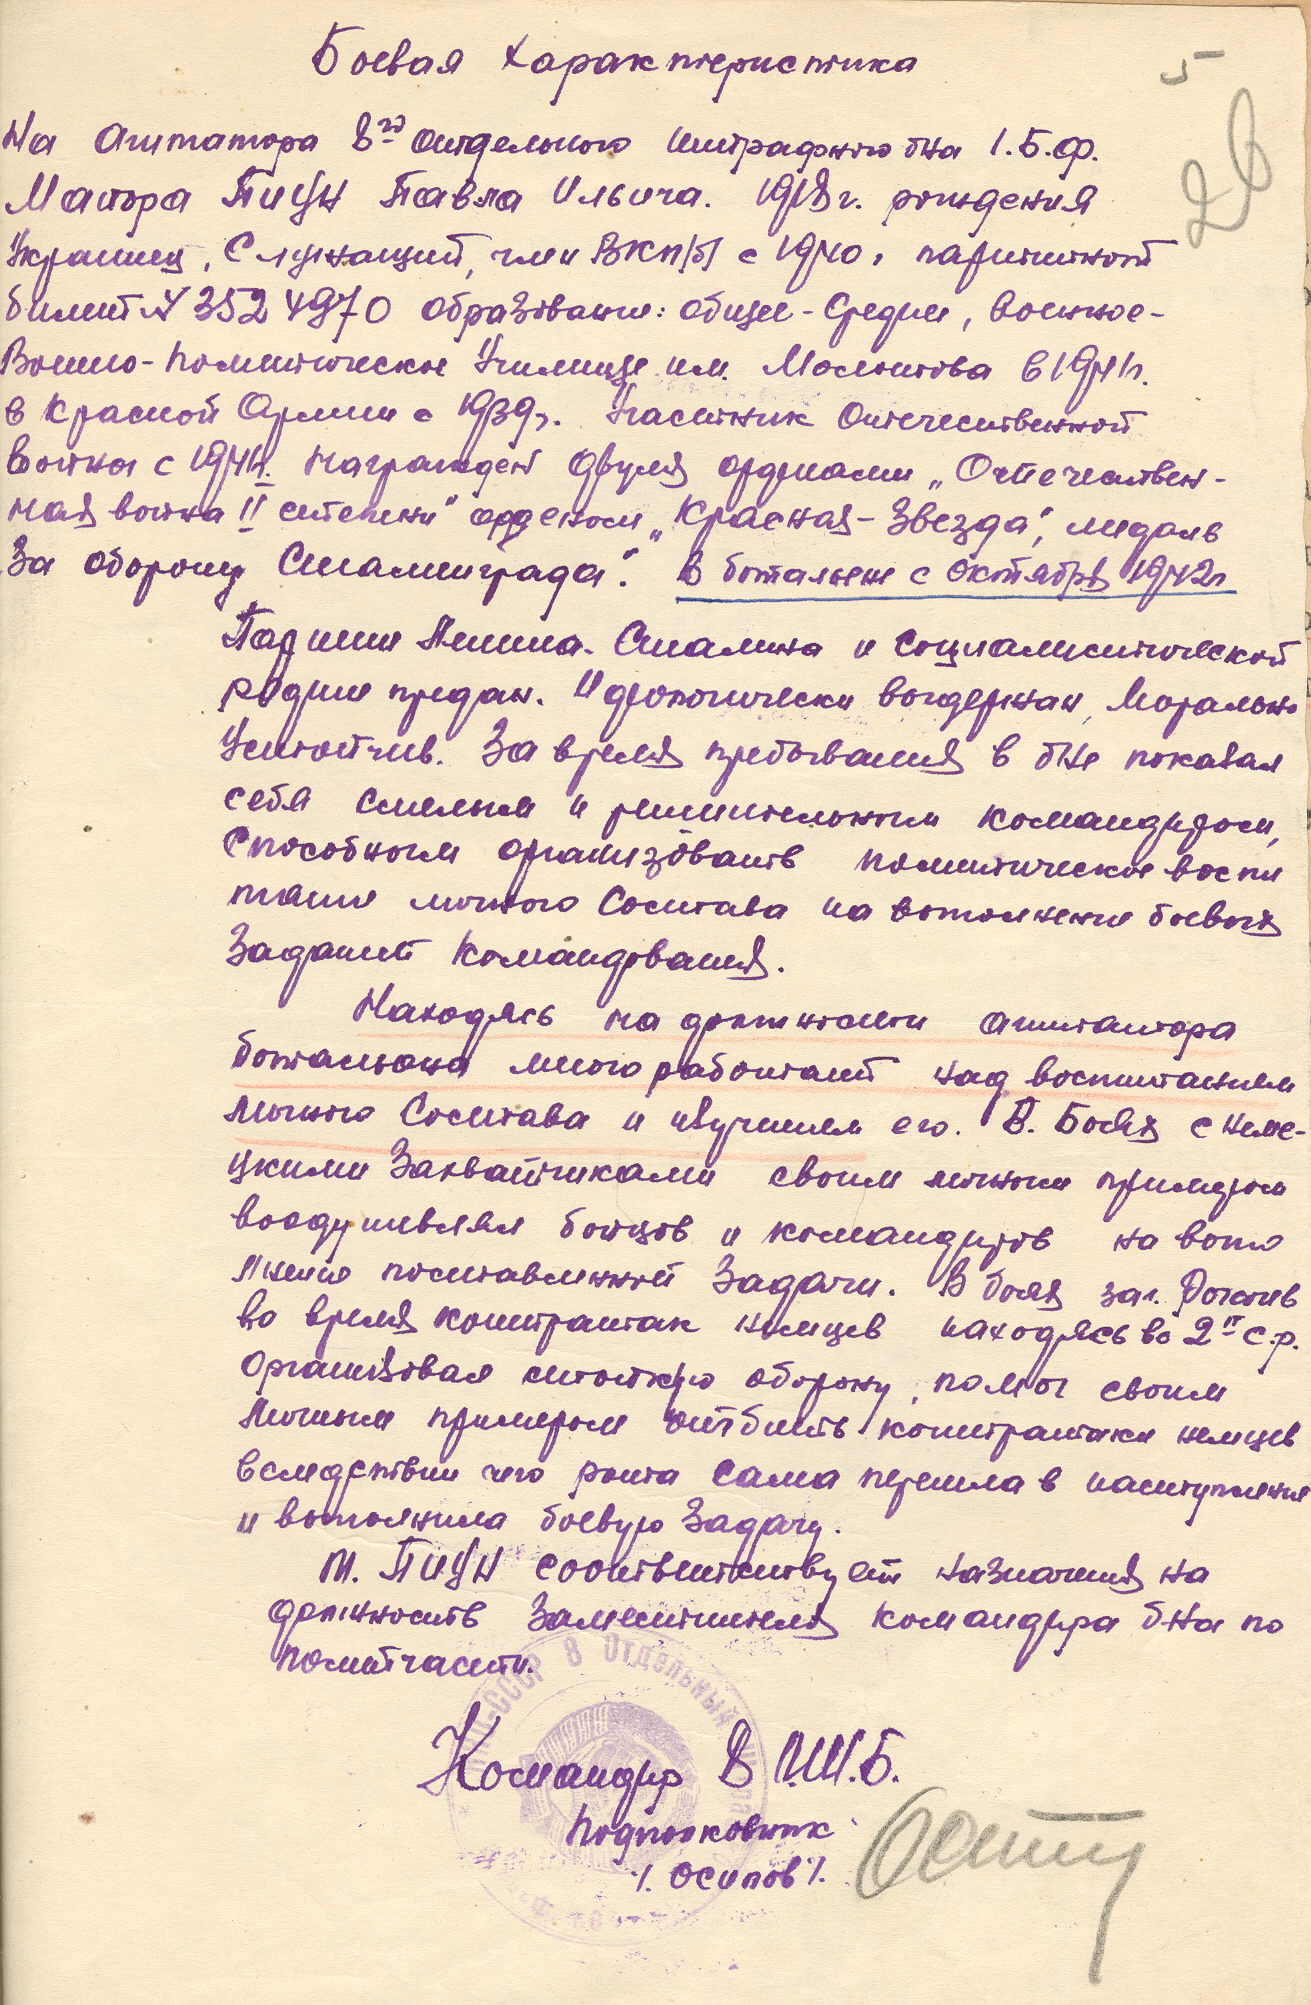 Боевая характеристика
5
26
На агитатора 8го отдельного штрафного б-на 1.Б.Ф.
Майора Пиун Павла Ильича. 1918 г. рождения
Украинец, Служащий, член ВКП/б/ с 1940, партийный
билет № 3524970 Образование: общее - Средне, военное -
Военно-политическое Училище им. Молотова в 1941 г.
в Красной Армии с 1939 г. Участник Отечественной
войны с 1941 г. Награжден двумя орденами „Отечествен-
ная война II степени" орденом „Красная-Звезда", медаль
За оборону Сталинграда". В батальене с Октября 1942 г
Партии Ленина-Сталина и Социалистической
родине предан. Идеологически выдержан, Морально
Устойчив. За время пребывания в б-не показал
себя смелым и решительным командиром,
Способным организовать политическое воспи
тание личного Состава на выполнение боевых
Заданий командования.
Находясь на должности агитатора
батальона много работает над воспитанием
личного Состава и изучением его. В. Боях с неме-
цкими Захватчиками своим личным примером
воодушевлял бойцов и командиров на выпо
лнение поставленной Задачи. В боях за г. Рогачев
во время контратак немцев находясь во 2й с.р.
Организовал стойкую оборону, помог своим
личным примером отбить контратаки немцев
вследствии чего рота сама перешла в наступления
и выполнила боевую Задачу.
т. Пиун соответствует назначения на
должность Заместителя командира б-на по
политчасти.
СССР 8 Отдельный
Командир 8 О.Ш.Б.
Подполковник
/. Осипов /.